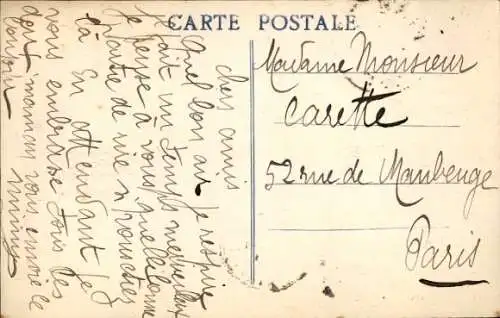 CARTE POSTALE
chers amis
Quel bon air je respire
il fait un temps merveilleux
je pense à vous, quelle bonne
partie de rire
là En attendant je
vous embrasse tous les
dont maman vous envoie le
bonjour
Mimy
Madame Monsieur
Carette
52 rue de Maubeuge
Paris